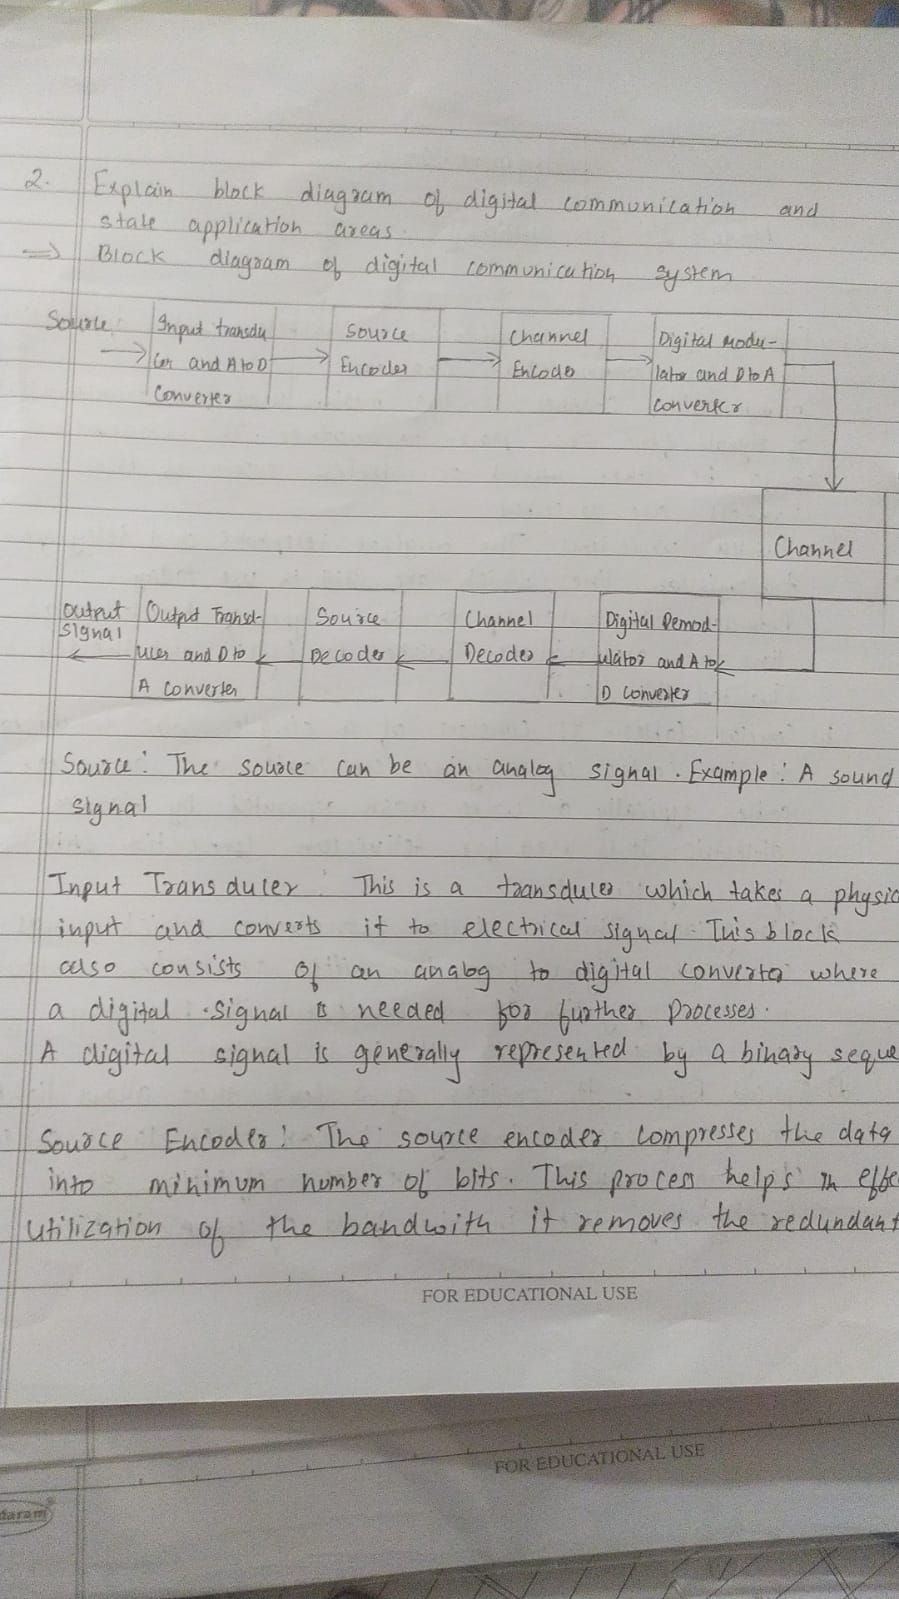 2. Explain block diagram of digital communication and
state application areas.
=> Block diagram of digital communication system
Source
Input transdu
cer and A to D
Converter
Source
Encoder
Channel
Encode
Digital modu-
lator and D to A
converter
Channel
Output
signal
Output Transd-
ucer and D to
A Converter
Source
Decoder
Channel
Decoder
Digital Demod-
ulator and A to
D converter
Source : The source can be an analog signal. Example : A sound
signal
Input Transducer : This is a transducer which takes a physic
input and converts it to electrical signal. This block
also consists of an analog to digital converter where
a digital signal is needed for further processes.
A digital signal is generally represented by a binary seque
Source Encoder : The source encoder compresses the data
into minimum number of bits. This process helps in effe
utilization of the bandwith it removes the redundant
FOR EDUCATIONAL USE
FOR EDUCATIONAL USE
daram